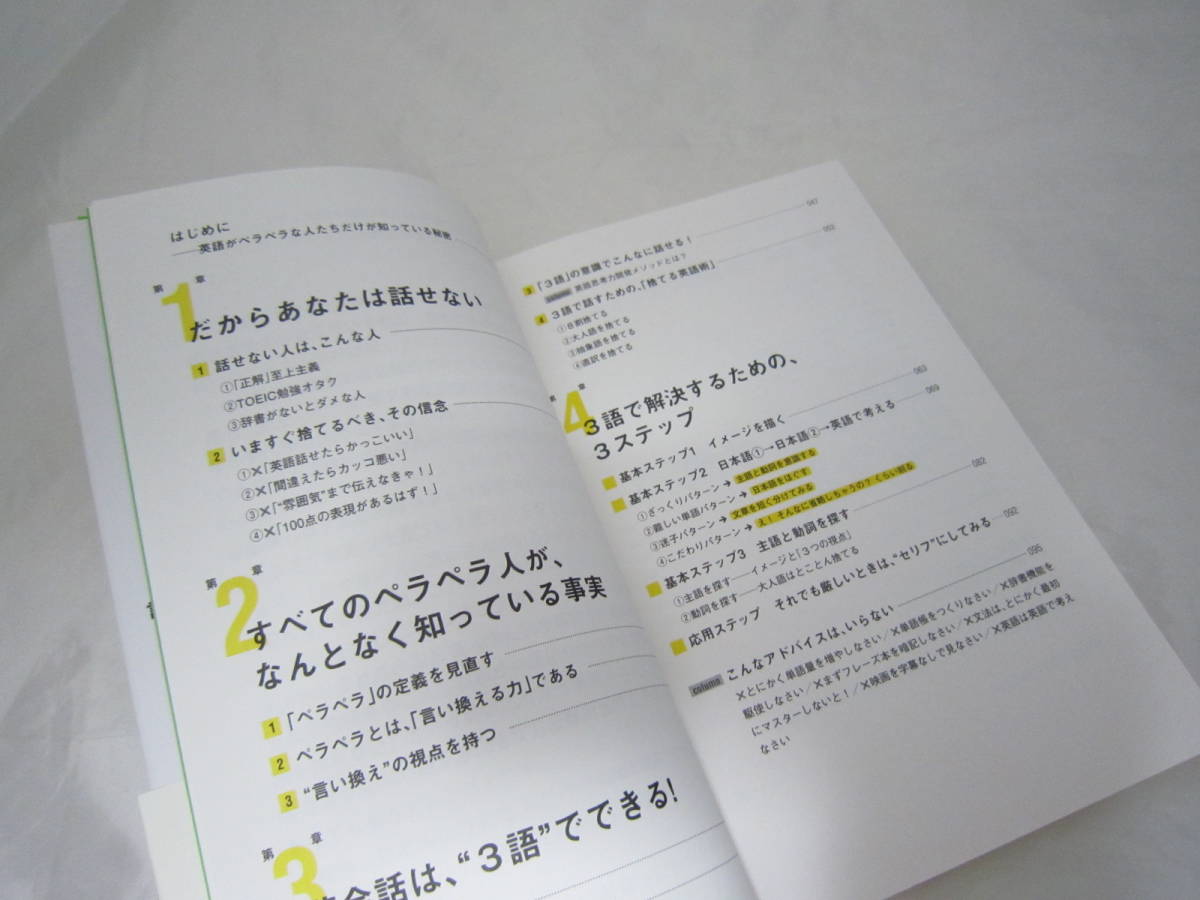 はじめに
——英語がペラペラな人たちだけが知っている秘密
第1章
だからあなたは話せない
1 話せない人は、こんな人
①「正解」至上主義
②TOEIC勉強オタク
③辞書がないとダメな人
2 いますぐ捨てるべき、その信念
①×「英語話せたらかっこいい」
②×「間違えたらカッコ悪い」
③×「“雰囲気”まで伝えなきゃ！」
④×「100点の表現があるはず！」
第2章
すべてのペラペラ人が、
なんとなく知っている事実
1 「ペラペラ」の定義を見直す
2 ペラペラとは、「言い換える力」である
3 “言い換え”の視点を持つ
第3章
会話は、“3語”でできる!
3 「3語」の意識でこんなに話せる！ 047
column 英語思考力開発メソッドとは？
4 3語で話すための、「捨てる英語術」 052
①8割捨てる
②大人語を捨てる
③抽象語を捨てる
④直訳を捨てる
第4章
3語で解決するための、
3ステップ
基本ステップ1 イメージを描く 063
基本ステップ2 日本語①→日本語②→英語で考える 069
①ざっくりパターン→主語と動詞を意識する
②難しい単語パターン→日本語をほぐす
③迷子パターン→文章を短く分けてみる
④こだわりパターン→え！ そんなに省略しちゃうの？ くらい削る
基本ステップ3 主語と動詞を探す 082
①主語を探す——イメージと「3つの視点」
②動詞を探す——大人語はとことん捨てる
応用ステップ それでも厳しいときは、“セリフ”にしてみる 092
column こんなアドバイスは、いらない 095
×とにかく単語量を増やしなさい／×単語帳をつくりなさい／×辞書機能を
駆使しなさい／×まずフレーズ本を暗記しなさい／×文法は、とにかく最初
にマスターしないと！／×映画を字幕なしで見なさい／×英語は英語で考え
なさい